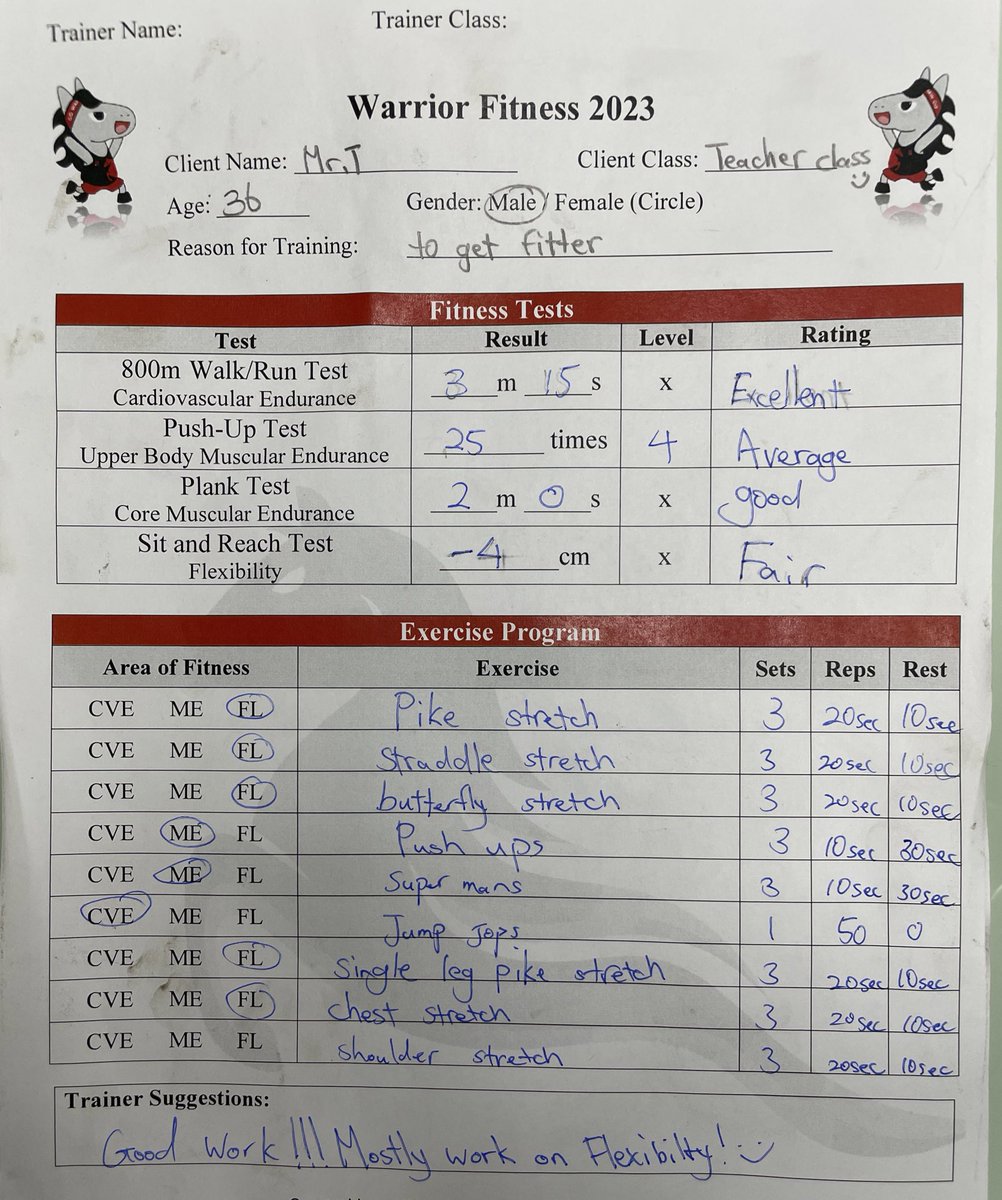 Trainer Name: Trainer Class:
Warrior Fitness 2023
Client Name: Mr.T Client Class: Teacher class
Age: 36 Gender: Male / Female (Circle)
Reason for Training: to get fitter
Fitness Tests
Test Result Level Rating
800m Walk/Run Test
Cardiovascular Endurance 3 m 15 s x Excellent
Push-Up Test
Upper Body Muscular Endurance 25 times 4 Average
Plank Test
Core Muscular Endurance 2 m 0 s x good
Sit and Reach Test
Flexibility -4 cm x Fair
Exercise Program
Area of Fitness Exercise Sets Reps Rest
CVE ME FL Pike stretch 3 20sec 10sec
CVE ME FL Straddle stretch 3 20sec 10sec
CVE ME FL butterfly stretch 3 20sec 10sec
CVE ME FL Push ups 3 10sec 30sec
CVE ME FL Super mans 3 10sec 30sec
CVE ME FL Jump jops 1 50 0
CVE ME FL Single leg pike stretch 3 20sec 10sec
CVE ME FL chest stretch 3 20sec 10sec
CVE ME FL shoulder stretch 3 20sec 10sec
Trainer Suggestions:
Good Work!!! Mostly work on Flexibilty!